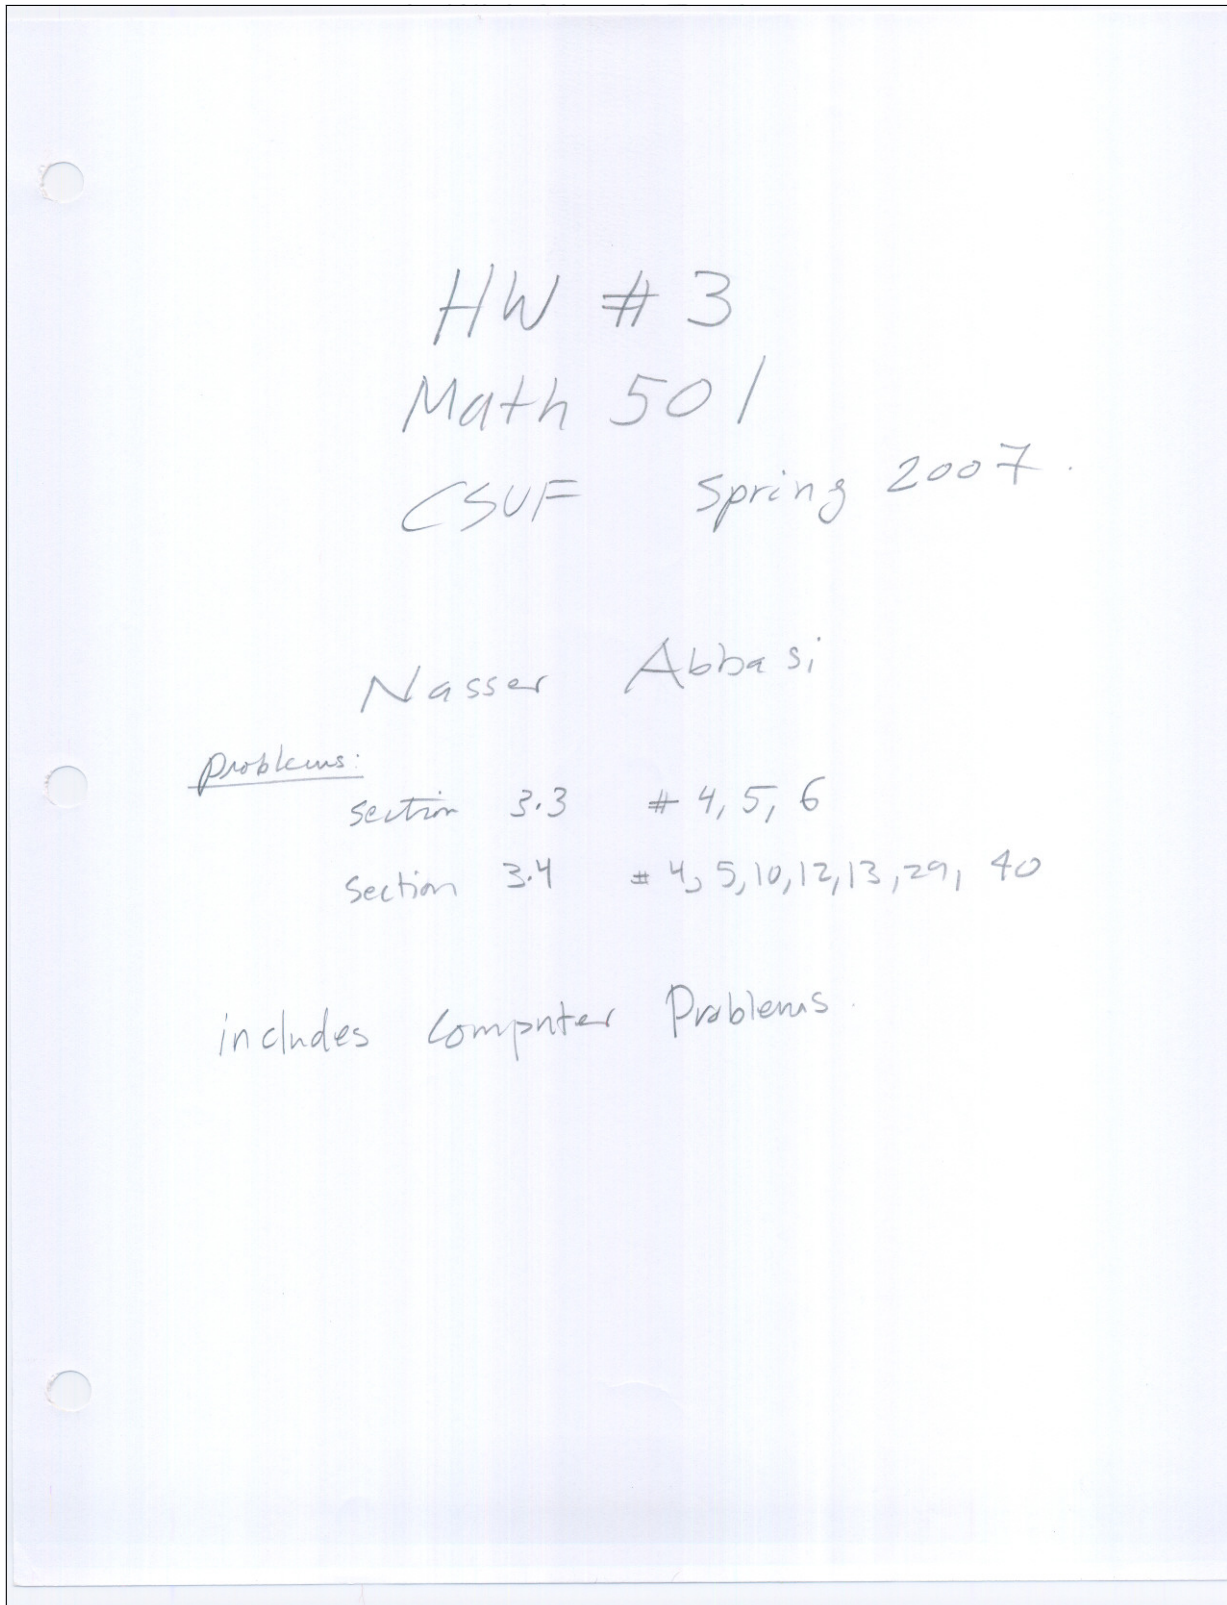 HW # 3
Math 501
CSUF Spring 2007.
Nasser Abbasi
problems:
section 3.3 # 4, 5, 6
section 3.4 # 4, 5, 10, 12, 13, 29, 40
includes Computer Problems.